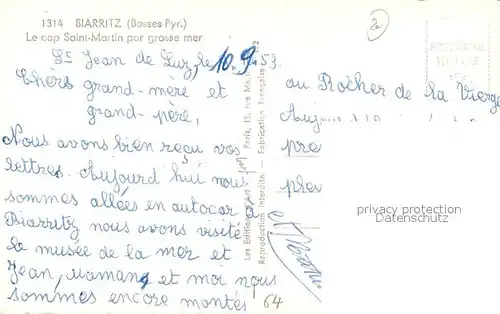 1314 BIARRITZ (Basses-Pyr.)
Le cap Saint-Martin par grosse mer
St Jean de Luz, le 10.9.53.
Chers grand-mère et
grand-père,
Nous avons bien reçu vos
lettres. Aujourd'hui nous
sommes allées en autocar à
Biarritz nous avons visité
le musée de la mer et
Jean, Maman et moi nous
sommes encore montés
au Rocher de la Vierge
Aujourd'hui
pre
plev
et
64
2
Les Editions d'Art Yvon Paris, 15, rue Martel
Reproduction Interdite. — Fabrication Française
privacy protection
Datenschutz
PHOTOGRAPHIE
VERITABLE